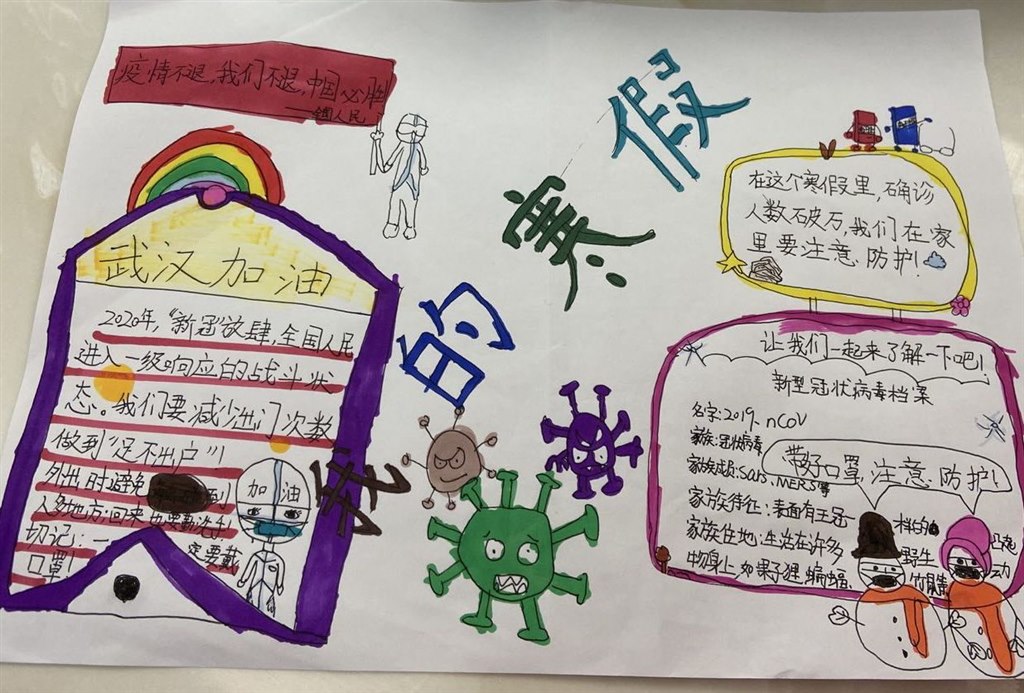 疫情不退,我们不退,中国必胜
——全国人民
我的寒假
武汉加油
2020年,“新冠”放肆,全国人民
进入一级响应的战斗状
态。我们要减少出门次数
做到“足不出户”!
外出时避免 到
人多地方,回来
切记:一定要戴
口罩!
加油
在这个寒假里,确诊
人数破万,我们在家
里要注意防护!
让我们一起来了解一下吧!
新型冠状病毒档案
名字:2019.nCoV
家族:冠状病毒
家族成员:SARS.MERS等
家族特征:表面有王冠一样的凸起
家族住地:生活在许多野生动
物身上如果子狸,蝙蝠,竹鼠等
带好口罩,注意防护!